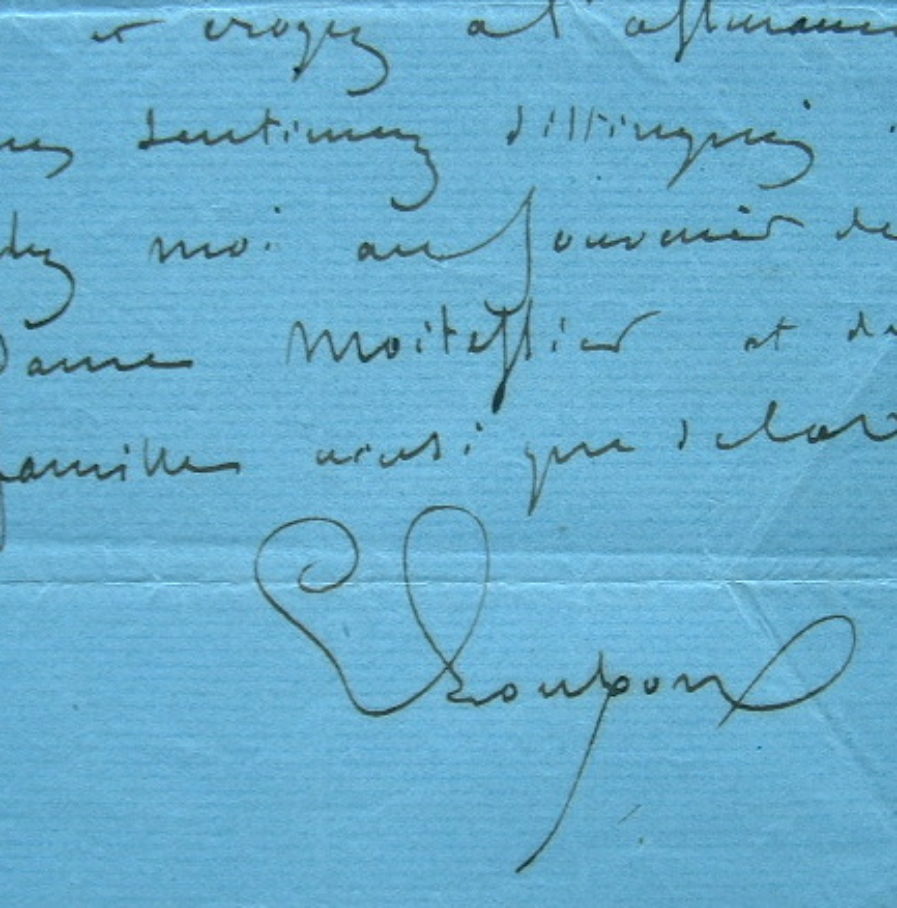 et croyez à l'assurance
sentimens distingués
moi au souvenir de
Dame Moitessier et de
famille ainsi que
Loubon